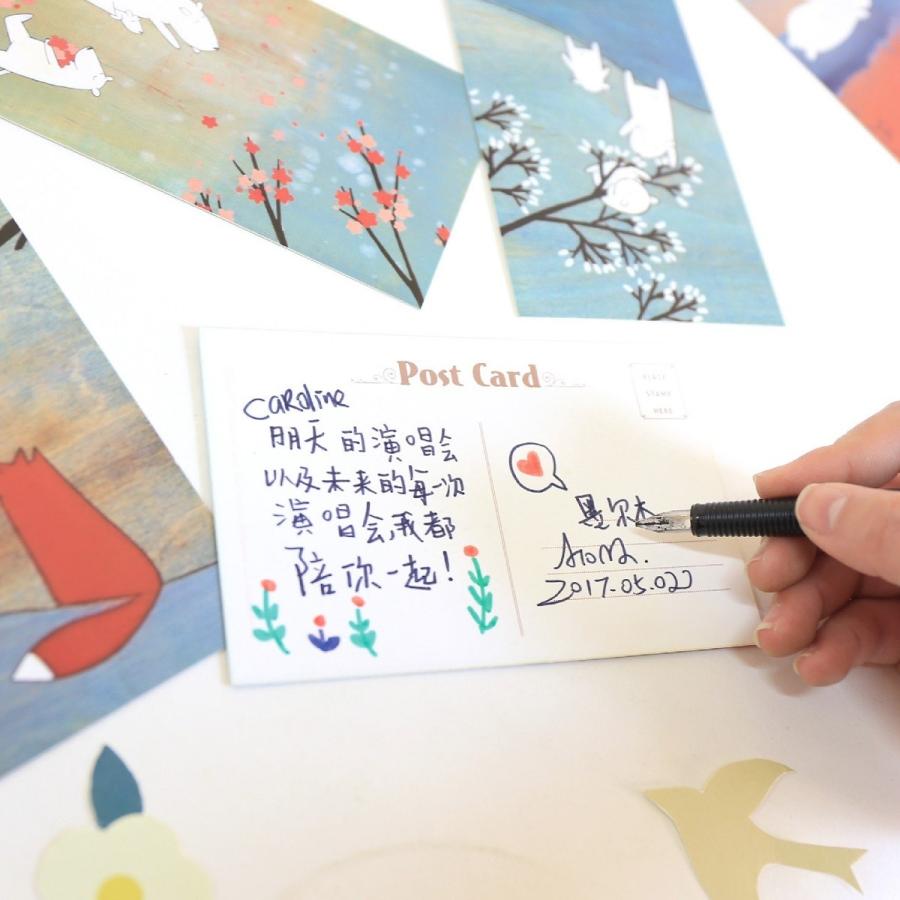 Post Card
PLACE
STAMP
HERE
Caroline
明天的演唱会
以及未来的每一次
演唱会,我都
陪你一起!
墨尔本
2017.05.02